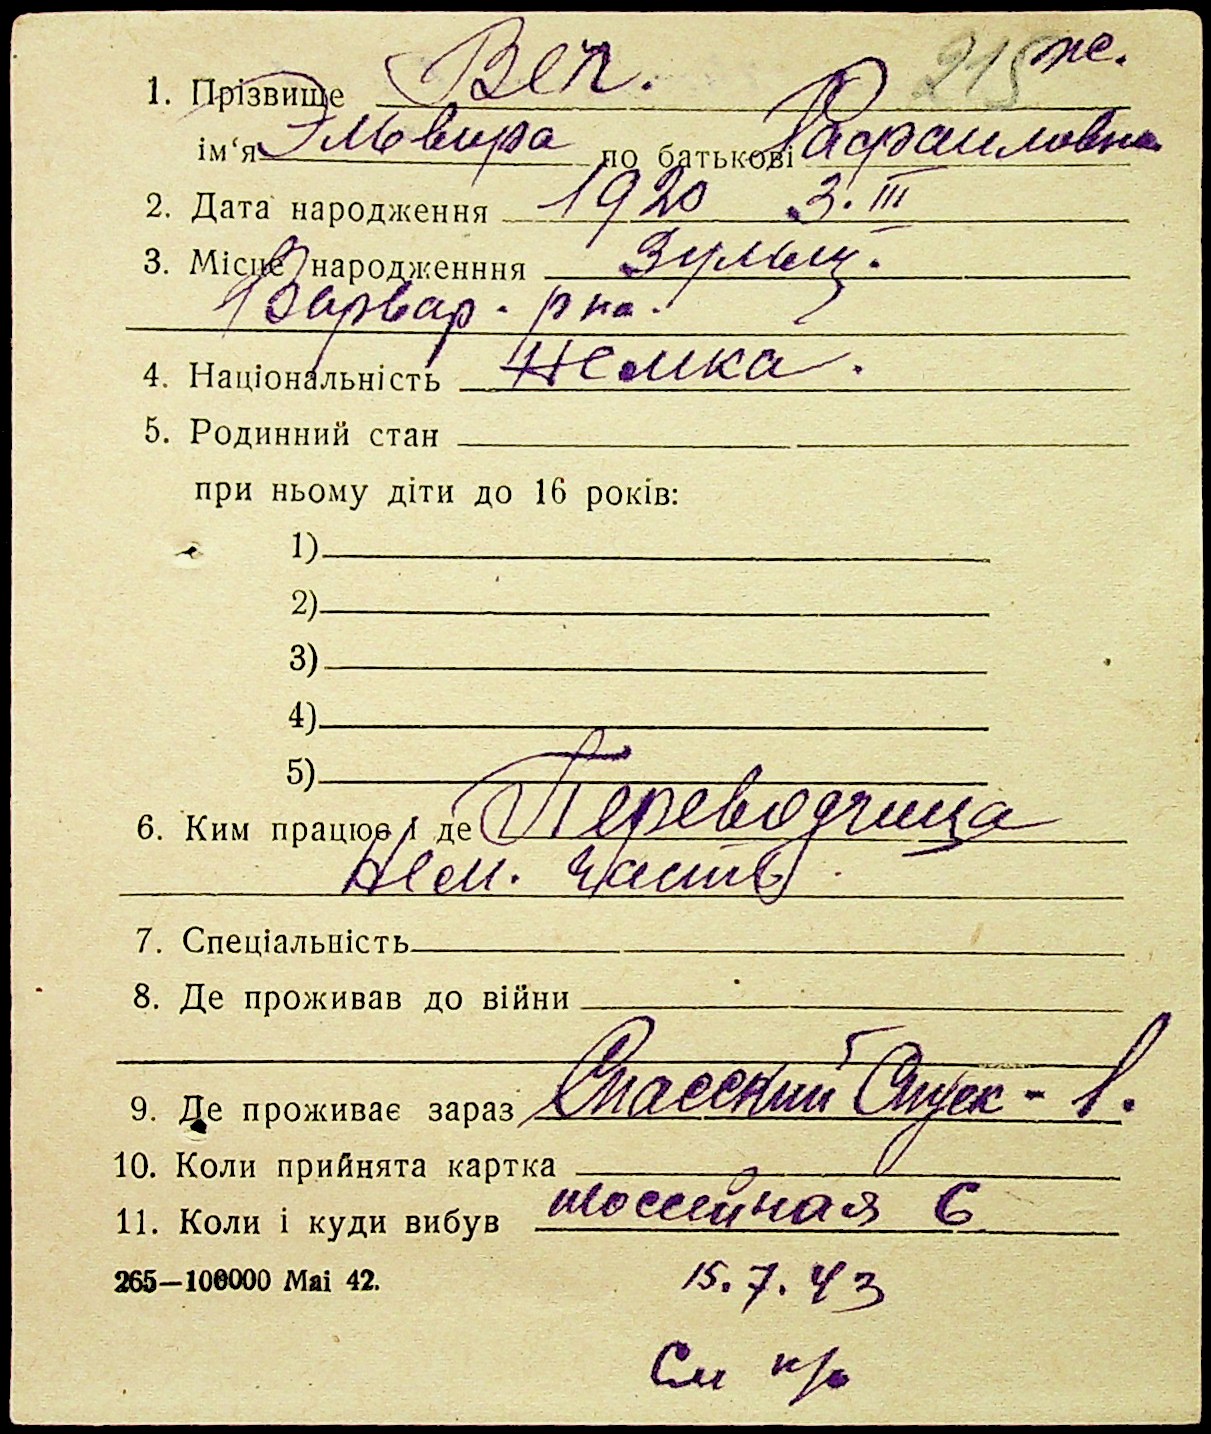 215 же.
1. Прізвище Веп.
ім'я Эльвира по батькові Рафаиловна
2. Дата народження 1920 3. III
3. Місце народженння Зульц.
Варвар. р на.
4. Національність Немка.
5. Родинний стан
при ньому діти до 16 років:
1)
2)
3)
4)
5)
6. Ким працює і де Переводчица
Нем. часть.
7. Спеціальність
8. Де проживав до війни
9. Де проживає зараз Спасский Спуск - 1.
10. Коли прийнята картка
11. Коли і куди вибув Шоссейная 6
265—100000 Mai 42.
15. 7. 43
См н/о